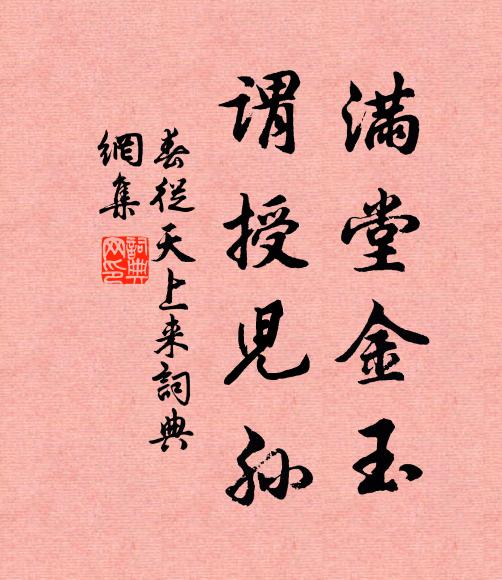 满堂金玉
谓授児孙
春從天上来詞典
網集
詞典
网印